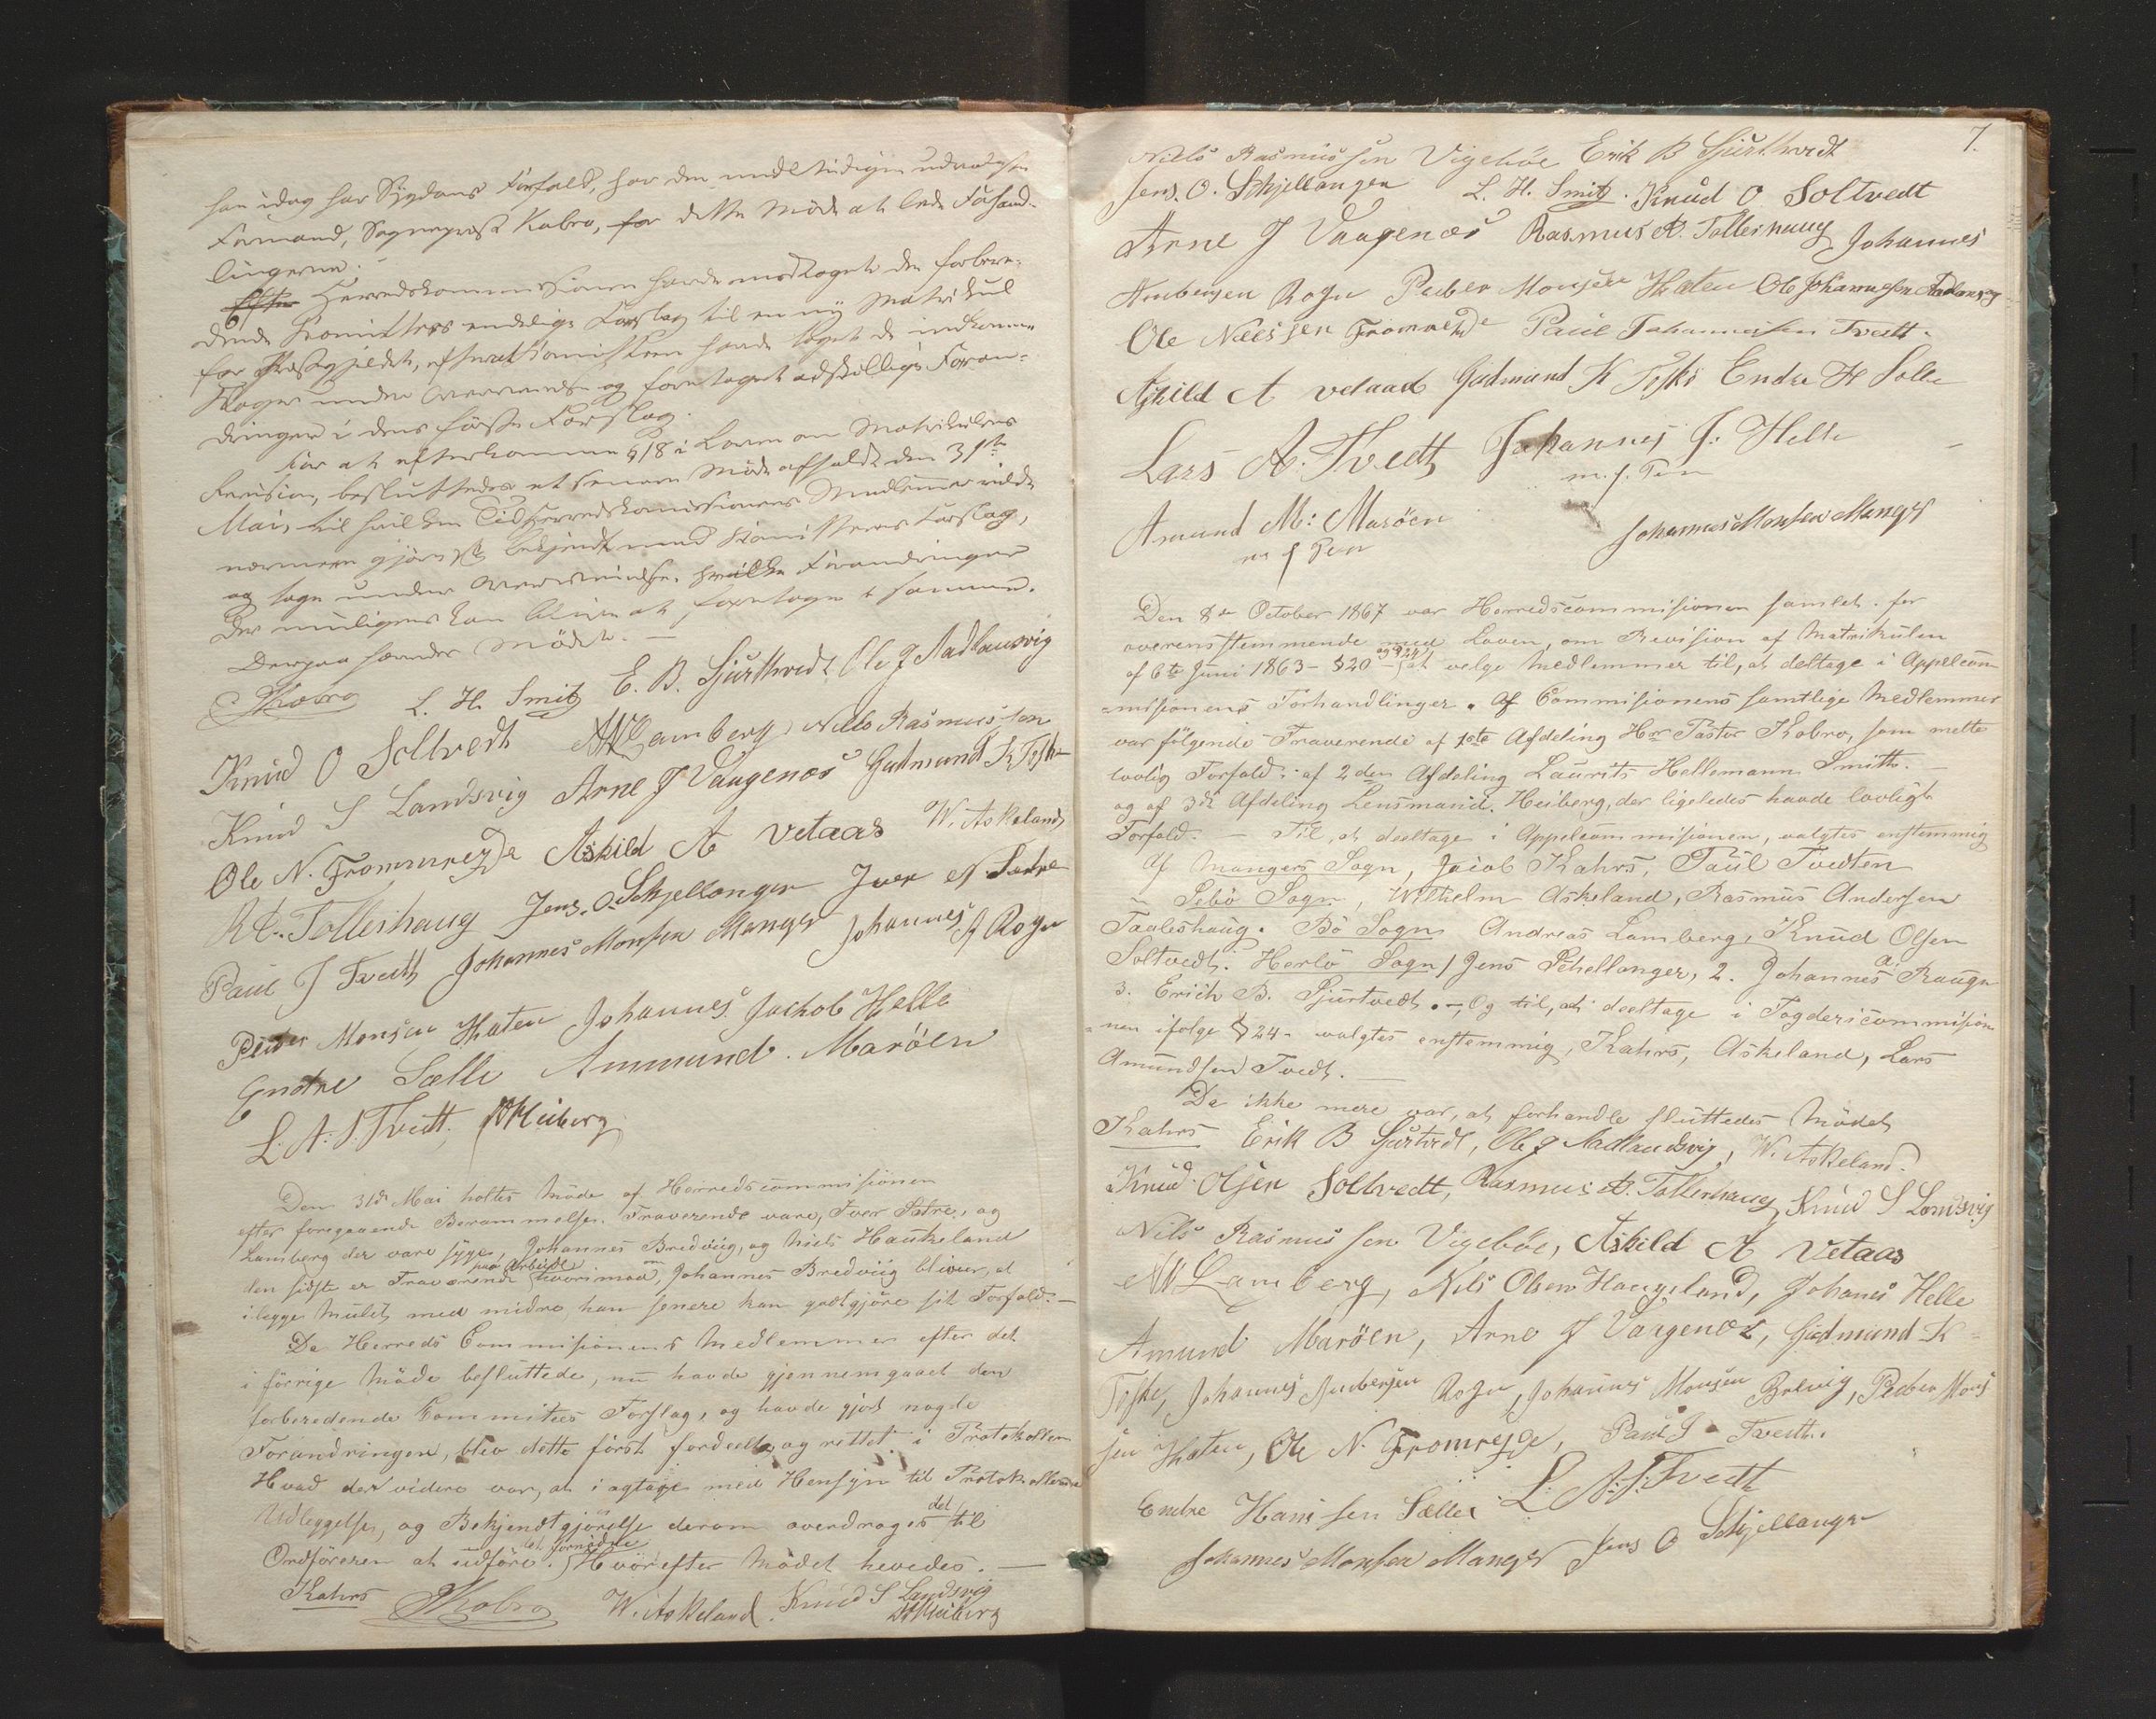 han idag har Sygdoms Forfald, har den midlertidigen udvalgte
Formand, Sognepræst Kobro, for dette Møde at lede Forhand-
lingerne.
Efter Herredskommissionen havde modtaget den forbere-
dende Komittees endelige Forslag til en ny Matrikul
for Præstegjeldet, efterat Komitteen havde taget de indkomne
Klager under Overveielse og foretaget adskillige Foran-
dringer i dens første Forslag.
For at efterkomme § 18 i Loven om Matrikulens
Revision, besluttedes et senere Møde afholdt den 31te
Mai, til hvilken Tid Herredskommissionens Medlemmer vilde
nærmere gjøre sig bekjendt med Komitteens Forslag,
og tage under Overveielse, hvilke Forandringer
der muligens kan blive at foretage i samme.
Derpaa hævedes Mødet. —
Kobro L. H. Smitz E. B. Sjurthvedt Ole J Aadlandsvig
Knud O Soltvedt AWLamberg Nills Rasmussen
Knud S Landsvig Arne J Vaagenes Gudmund K Toske
Ole N. Fromreide Askild A Vetaas W. Askeland
R A. Tolleshaug Jens. O. Schjellanger Iver N Sætre
Paul J Tvedt Johannes Monsen Manger Johannes A Rogn
Peder Monsen Haten Johannes Jackob Helle
Endre Sælle Ammund. Marøen
L. A. S. Tvedt, Heiberg
Den 31te Mai holtes Møde af Herredscommissionen
efter foregaaende Berammelse. Fraverende vare, Iver Sætre, og
Lamberg der vare syge, Johannes Bredviig, og Niels Haukeland
den sidste er Fraværende paa Arbeide hvorimod, Johannes Bredviig bliver, at
ilegge Mulct, med midre han senere kan godtgjøre sit Forfald. —
Da Herreds Commisionens Medlemmer efter det
i förrige Möde besluttede, nu havde gjennemgaaet den
forberedende Commitees Forslag, og havde gjort nogle
Forandringer, blev dette först fordeelt, og rettet i Protokollen
Hvad der videre var, at iagtage med Hensyn til Protokollernes
Udleggelse, og Bekjendtgjørelse derom overdroges det til
Ordføreren at udføre det fornødne. Hvorefter Mødet hevedes. —
Kahrs Kobro W. Askeland. Knud S Landsvig
Heiberg
7.
Nills Rasmussen Vigebøe Erik B Sjurthvedt
Jens. O. Schjellanger L. H. Smitz. Knud O Soltvedt
Arne J Vaagenes Rasmus A. Tolleshaug Johannes
Andersen Rogn Peder Monsen Haten Ole Johannessen Aadlansvig
Ole Nilssen Fromreide Paul Johannessen Tvedt.
Askild A vetaas Gudmund K Toske Endre H Selle
Lars A. Tvedt Johannes J. Helle
m. f. Pen
Amund M: Marøen Johannes Monsen Manger
m f Pen
Den 8de October 1867 var Herredscommisionen samlet. for
overensstemmende med Loven, om Revision af Matrikulen
af 6te Juni 1863 - §20 og §24, at velge Medlemmer til, at deltage i Appelcom-
misionens Forhandlinger. Af Commisionens samtlige Medlemmer
var følgende Fraverende af 1ste Afdeling Hr Pastor Kobro, som mette
lovlig Forfald: af 2den Afdeling Laurits Hellemann Smith. —
og af 3de Afdeling Lensmand. Heiberg, der ligeledes havde lovligt
Forfald. — Til, at deeltage i Appelcommisionen, valgtes enstemmig
Af Mangers Sogn, Jacob Kahrs, Paul Tvedten
" Sebø Sogn, Wilhelm Askeland, Rasmus Andersen
Taaleshaug. Bö Sogn Andreas Lamberg, Knud Olsen
Soltvedt. Herlö Sogn 1 Jens Schellanger, 2. Johannes A. Raagn
3. Erich B. Sjurtvedt. —, Og til, at deeltage i Fogdericommision-
nen ifølge §24 - valgtes enstemmig, Kahrs, Askeland, Lars
Amundsen Tvedt. —
Da ikke mere var, at forhandle sluttedes Mödet
Kahrs Erik B Sjurtvedt, Ole J Aadlandsvig, W. Askeland.
Knud Olsen Soltvedt, Rasmus A. Tolleshaug, Knud S Landsvig
Nils Rasmussen Vigebøe, Askild A Vetaas
AW Lamberg, Nils Olsen Haugeland, Johanes Helle
Amund Marøen, Arne J Vaagenes, Gudmund K
Toske, Johannes Andersen Rogn, Johannes Monsen Brevig, Peder Mons
sen Haten, Ole N. Fromreide, Paul J Tvedt.
Endre Hansen Sælle L. A. S. Tvedt
Johannes Monsen Manger Jens O Schjellanger